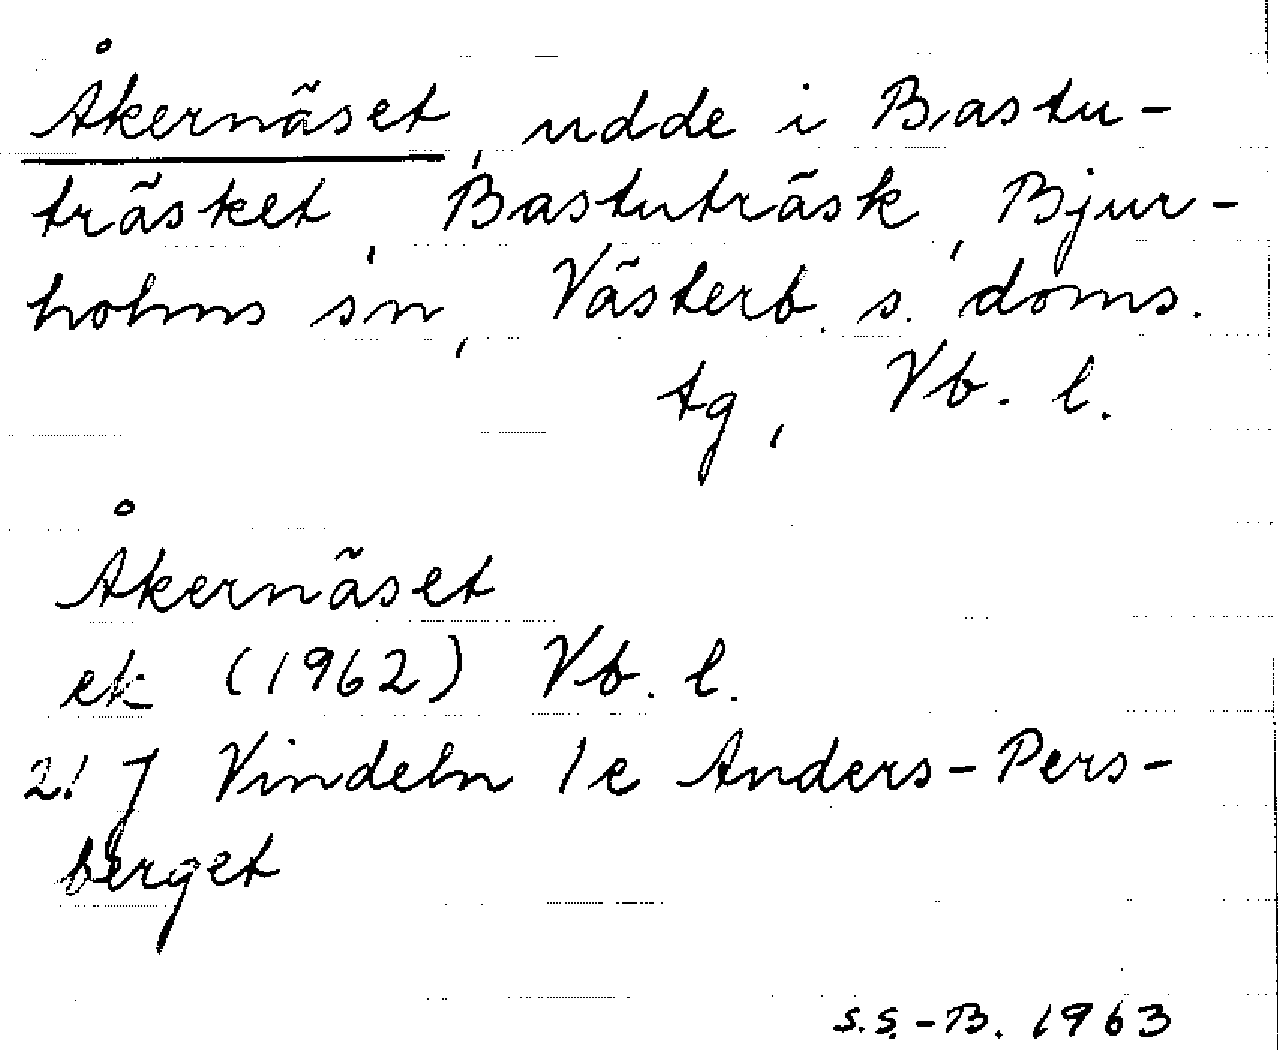 Åkernäset, udde i Bastu-
träsket, Bastuträsk, Bjur-
holms sn, Västerb. s. doms.
tg, Vb. l.
Åkernäset
ek (1962) Vb. l.
21 J Vindeln 1e Anders-Pers-
berget
S.S.-B. 1963